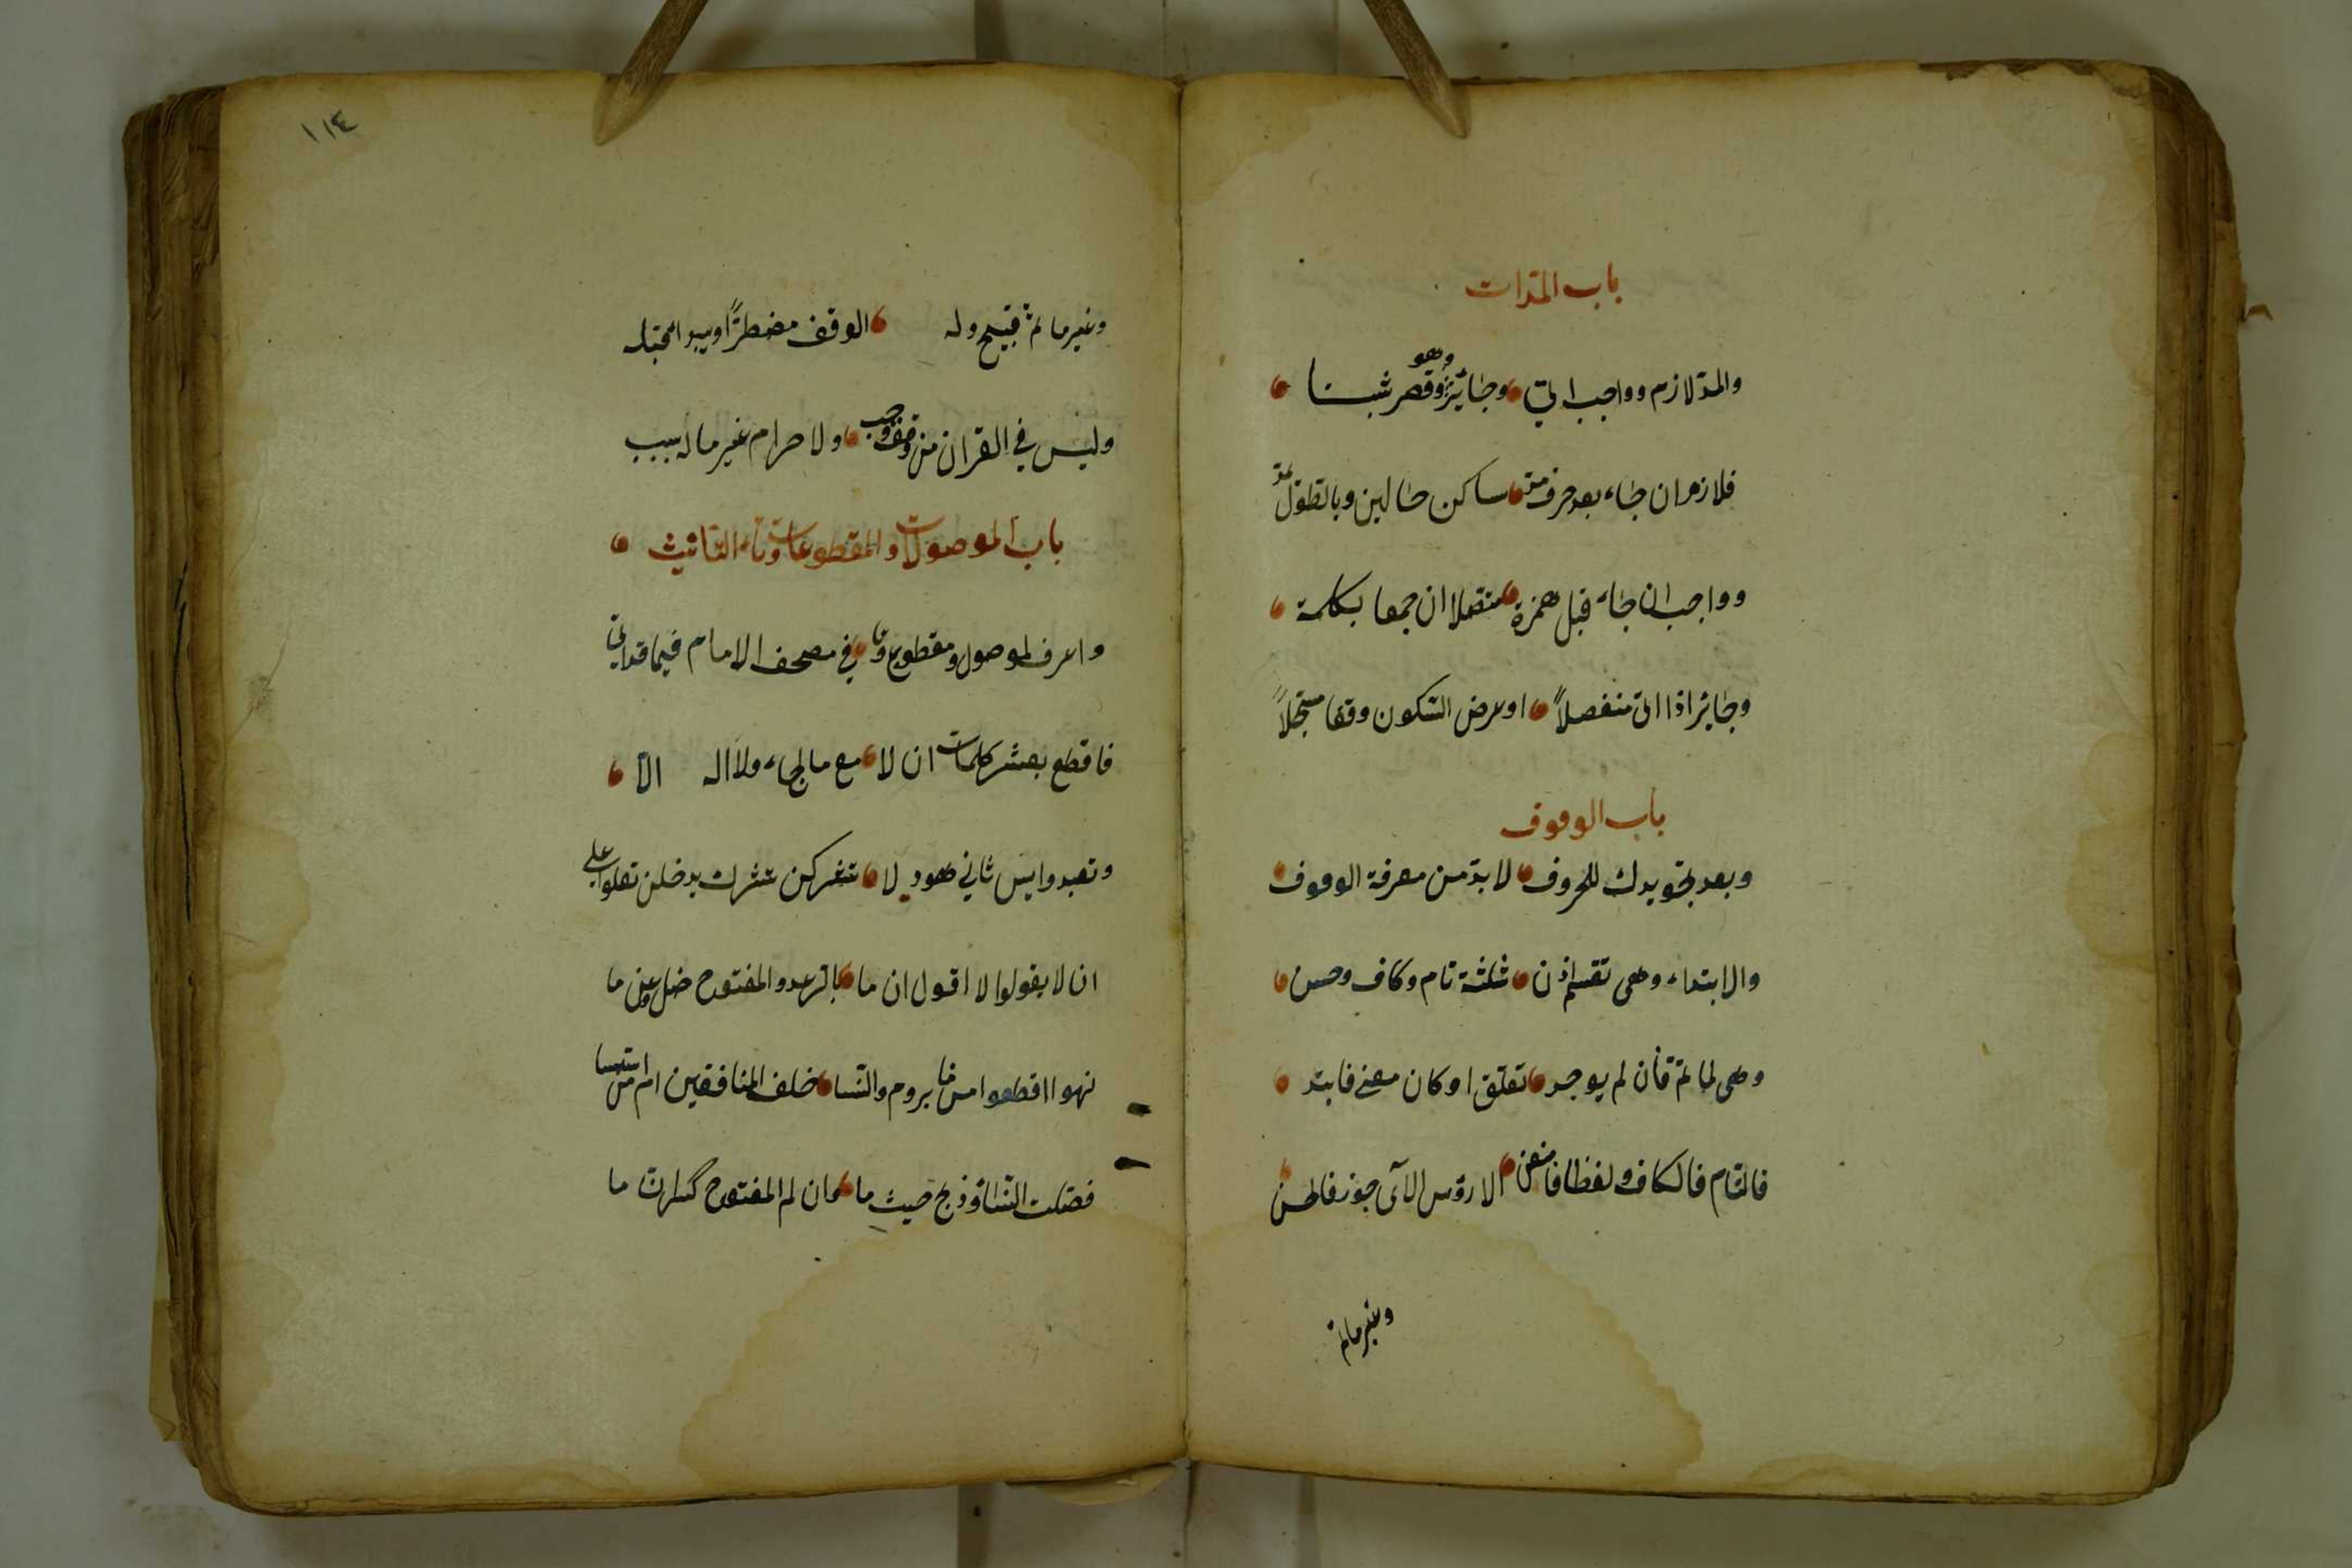 باب المدات
والمد لازم وواجب اتى وجائز وهو وقصر ثبتا
فلازم ان جاء بعد حرف مد ساكن حالين وبالطول يمد
وواجب ان جاء قبل همزة متصلا ان جمعا بكلمة
وجائز اذا اتى منفصلاً او عرض السكون وقفا مسجلاً
باب الوقوف
وبعد تجويدك للحروف لا بد من معرفة الوقوف
والابتداء وهى تقسم اذن ثلثة تام وكاف وحسن
وهى لما تم فأن لم يوجد تعلق او كان معنى فابتد
فالتام فالكاف ولفظا فامنعن الا رؤس الآى جوز فالحسن
وغير ما تم
١١٤
وغير ما تم قبيح وله الوقف مضطرًا ويبدا قبله
وليس في القران من وقف وجب ولا حرام غير ما له سبب
باب الموصولات والمقطوعات وتاء التانيث
واعرف لموصول ومقطوع وتا في مصحف الامام فيما قد اتى
فاقطع بعشر كلمات ان لا مع ملجاء ولا اله الا
وتعبدوا يس ثاني هود لا تشركن تشرك يدخلن تعلوا على
ان لا يقولوا لا اقول ان ما بالرعد والمفتوح صل وعن ما
نهوا اقطعوا من ما بروم والنسا خلف المنافقين ام من اسسا
فصلت النسا وذبح حيث ما وان لم المفتوح كسر ان ما